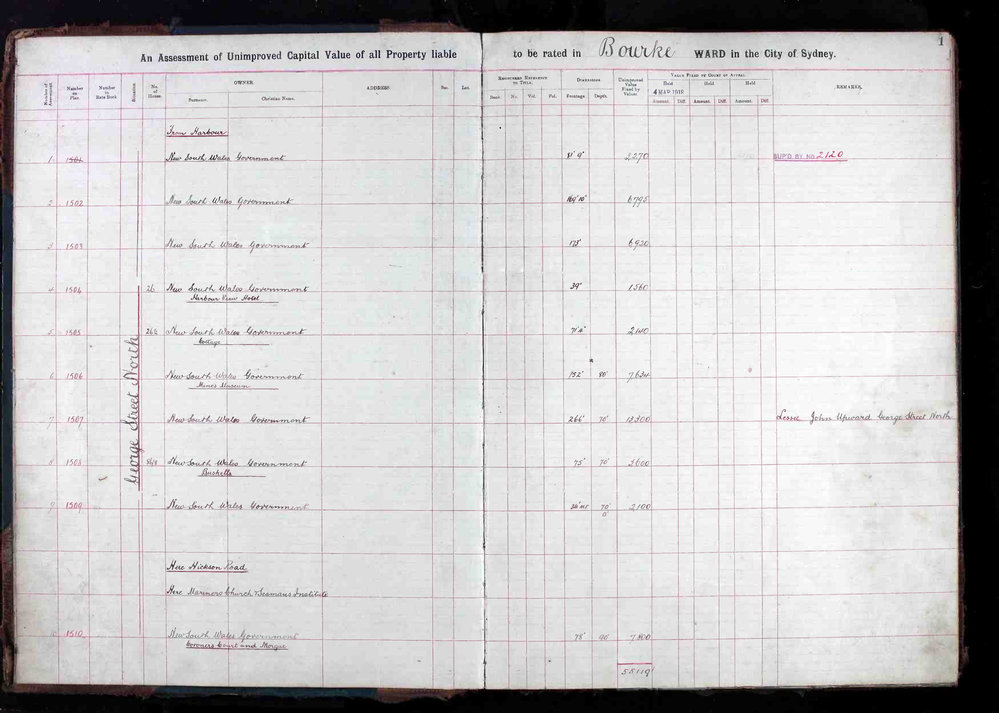 1
An Assessment of Unimproved Capital Value of all Property liable to be rated in Bourke WARD in the City of Sydney.
Number of Assessment Number on Plan Number in Rate Book Situation No. of House OWNER ADDRESS Sec. Lot. REGISTERED REFERENCE TO TITLE. DIMENSIONS Unimproved Value Fixed by Valuer VALUE FIXED BY COURT OF APPEAL REMARKS.
Surname. Christian Name. Book No. Vol. Fol. Frontage Depth. Held Held Held
4 MAR 1918
Amount. Diff. Amount. Diff. Amount. Diff.
George Street North
From Harbour
1 1501 New South Wales Government 9" 2270 SUP'D. BY. NO 2120
2 1502 New South Wales Government 169' 10" 6795
3 1503 New South Wales Government 173' 6920
4 1504 26 New South Wales Government 39' 1560
Harbour View Hotel
5 1505 New South Wales Government 71' 4" 2140
Cottage
6 1506 New South Wales Government 152' 80' 7634
Mines Museum
7 1507 New South Wales Government 266' 70' 13300 Lessee John Upward George Street North
8 1508 New South Wales Government 75' 70'
Bushells
9 1509 New South Wales Government 70' 2100
0"
Here Hickson Road
Here Mariners Church & Seamans Institute
10 1510 New South Wales Government 78' 90' 7800
Coroners Court and Morgue
55119